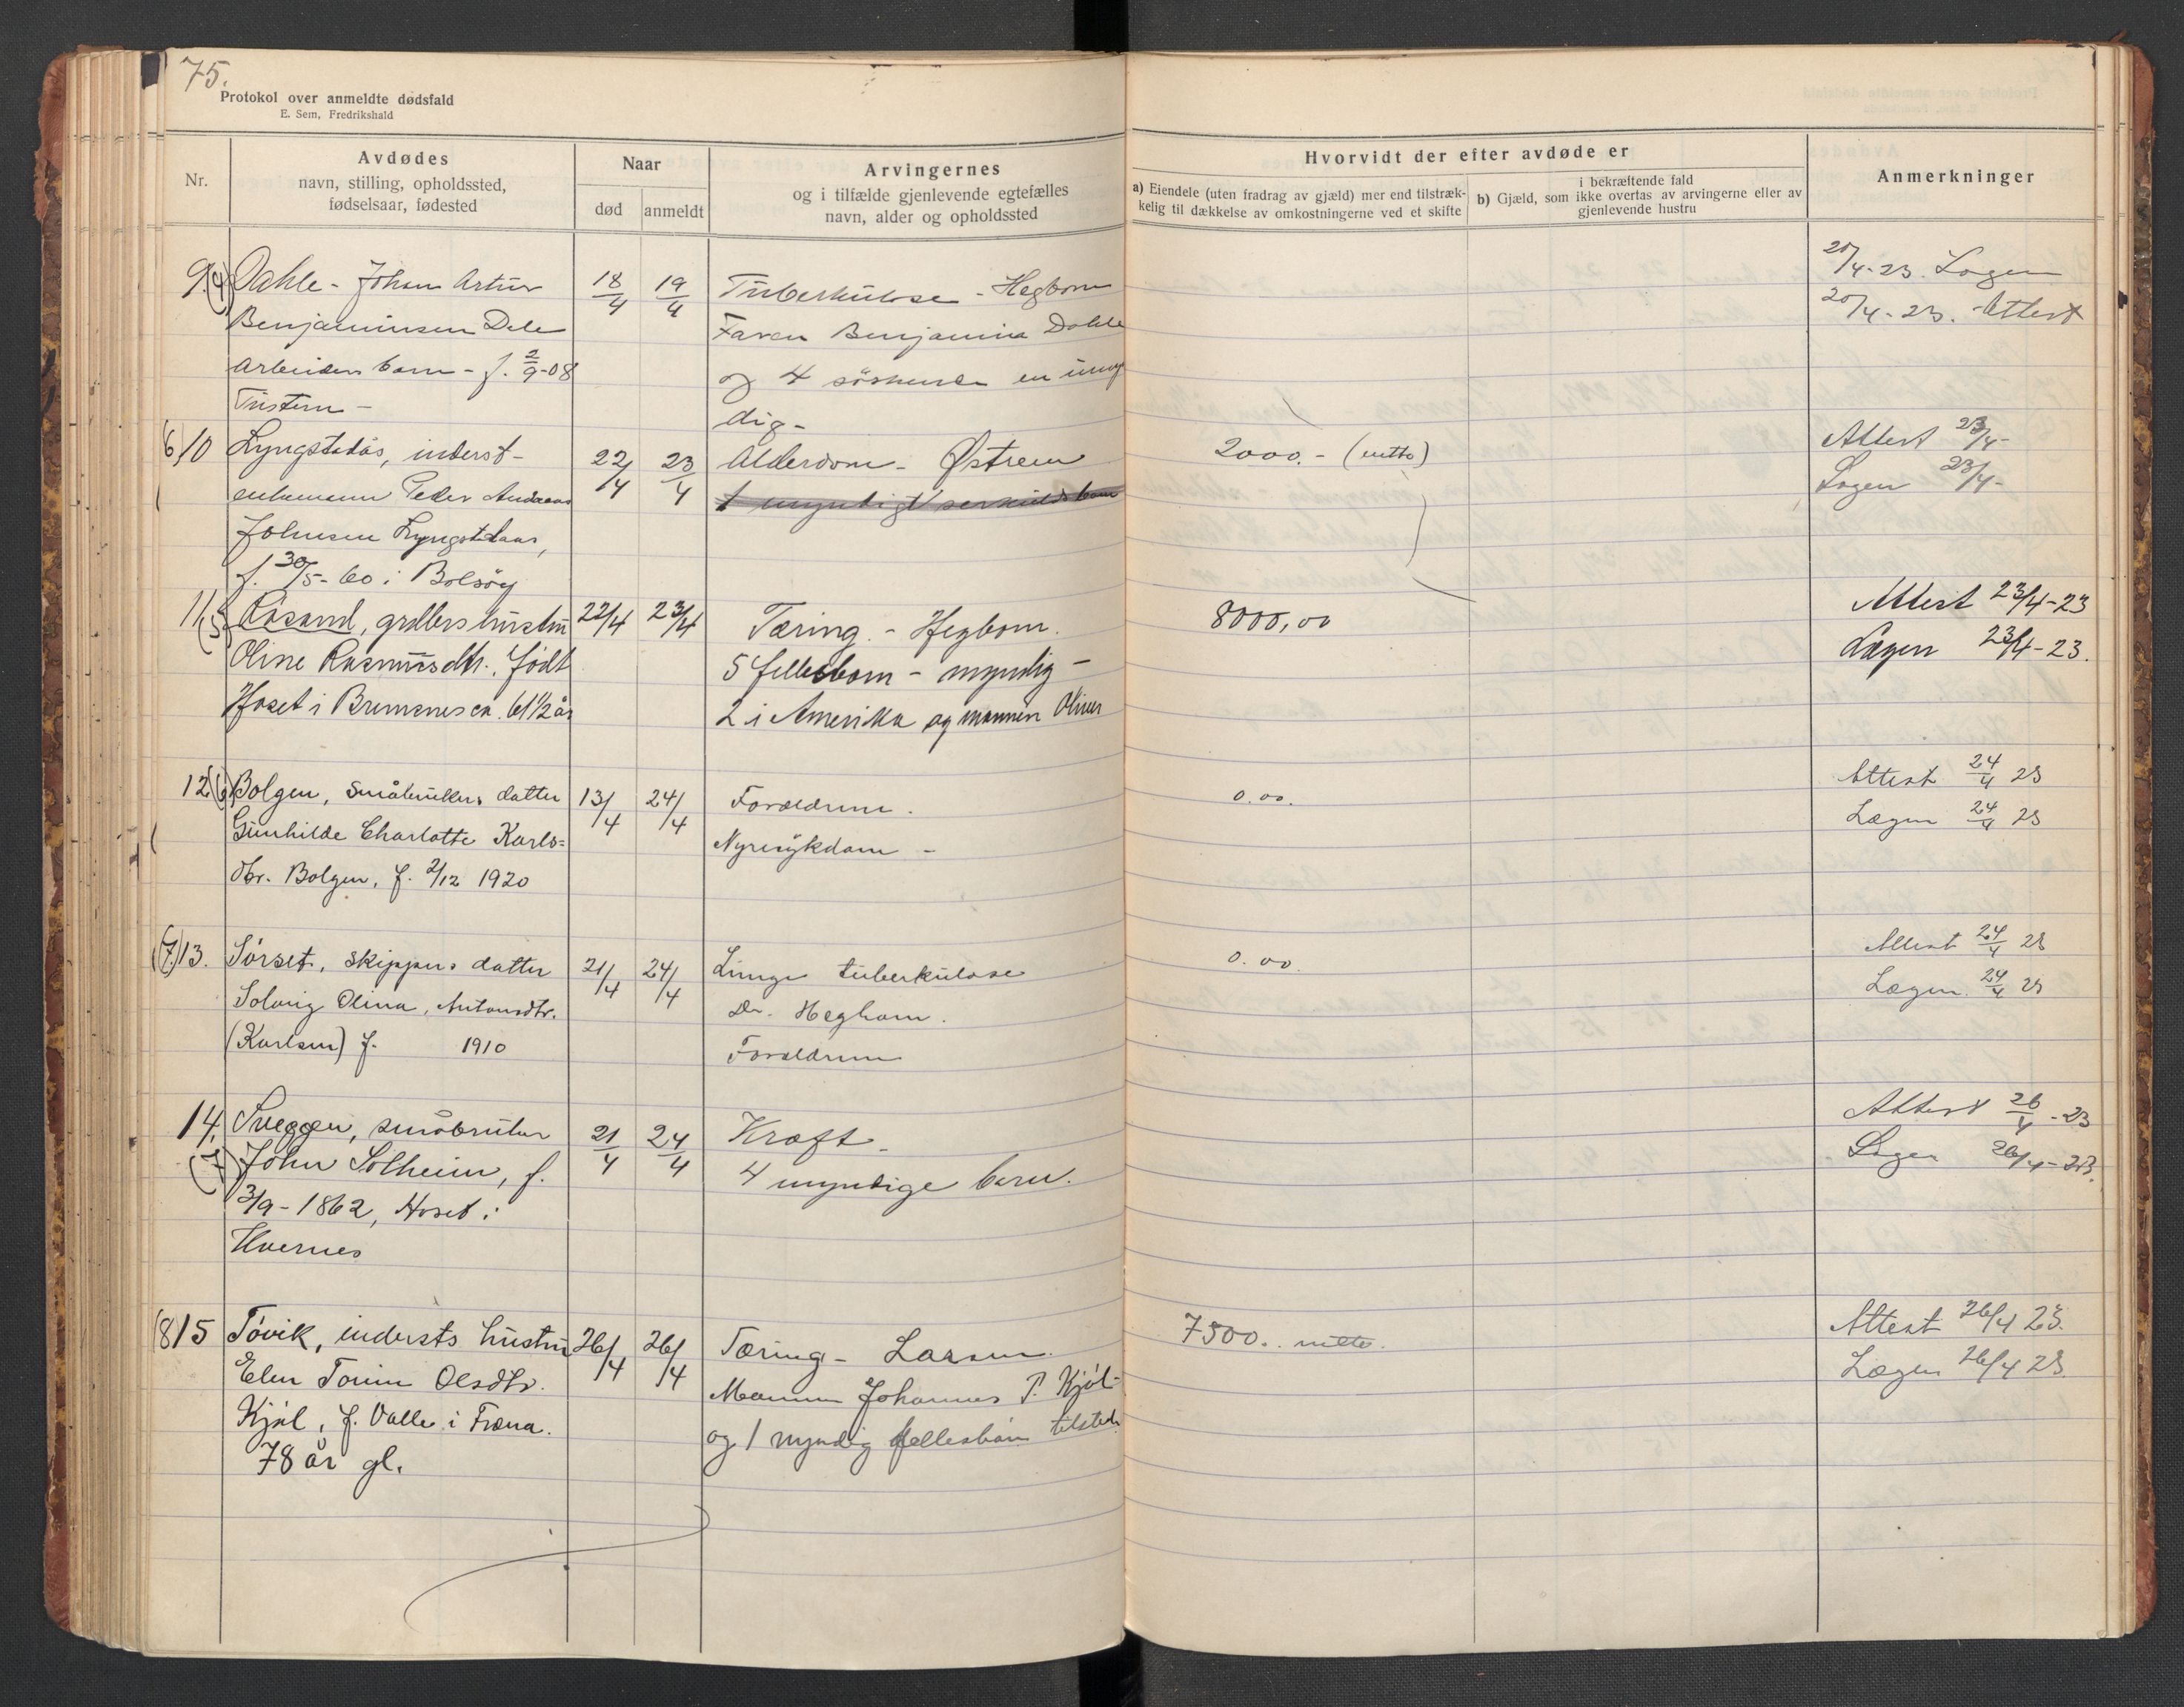 75.
Protokol over anmeldte dødsfald
E. Sem, Fredrikshald
Nr.
Avdødes
navn, stilling, opholdssted,
fødselsaar, fødested
Naar
død
anmeldt
Arvingernes
og i tilfælde gjenlevende egtefælles
navn, alder og opholdssted
Hvorvidt der efter avdøde er
a) Eiendele (uten fradrag av gjæld) mer end tilstræk-
kelig til dækkelse av omkostningerne ved et skifte
i bekræftende fald
b) Gjæld, som ikke overtas av arvingerne eller av
gjenlevende hustru
Anmerkninger
9. (4) Dahle - Johan Artur 18/4 19/4 Tuberkulose - Hegbom 20/4-23. Lægen
Benjaminsen Dale Faren Benjamin Dahle 20/4-23. Attest
Arbeiders barn - f. 2/9-08 og 4 søskende en umyn
Tustern - dig -
(6) 10 Lyngstadås, inderst - 22/4 23/4 Alderdom - Østrem 2000.- (netto) Attest 23/4-
enkemann Peder Andreas 1 myndigt særkuldsbarn Lægen 23/4-
Johnsen Lyngstadaas,
f. 30/5-60 i Bolsøy
11. (5) Røsand, grdbrs hustru 22/4 23/4 Tæring. - Hegbom. 8000,00 Attest 23/4-23
Oline Rasmusdtr. født 5 fellesbarn - myndig - Lægen 23/4-23.
Hoset i Bremsnes ca. 61 1/2 år 2 i Amerika og mannen Oliver
12 (6) Bolgen, småbrukers datter 13/4 24/4 Forældrene. 0.00. Attest 24/4 23
Gunhilde Charlotte Karls= Nyresykdom - Lægen 24/4 23
dtr. Bolgen, f. 2/12 1920
(7.) 13. Sørset, skippers datter 21/4 24/4 Lunge tuberkulose 0.00. Attest 24/4 23
Solveig Olina, Antonsdtr. Dr. Hegbom. Lægen. 24/4 23
(Karlsen) f. 1910 Forældrene
14. Sveggen, småbruker 21/4 24/4 Kræft - Attest 26/4-23
(7) John Solheim, f. 4 myndige barn. Lægen 26/4-23.
3/9-1862, Hoset i
Kvernes
(8) 15 Tøvik, indersts hustru 26/4 26/4 Tæring - Larsen. 7500.. netto. Attest 26/4 23.
Elen Tomine Olsdtr. Mannen Johannes P. Kjøl - Lægen 26/4 23.
Kjøl, f. Valle i Fræna. og 1 myndig fellesbarn tilstede
78 år gl.